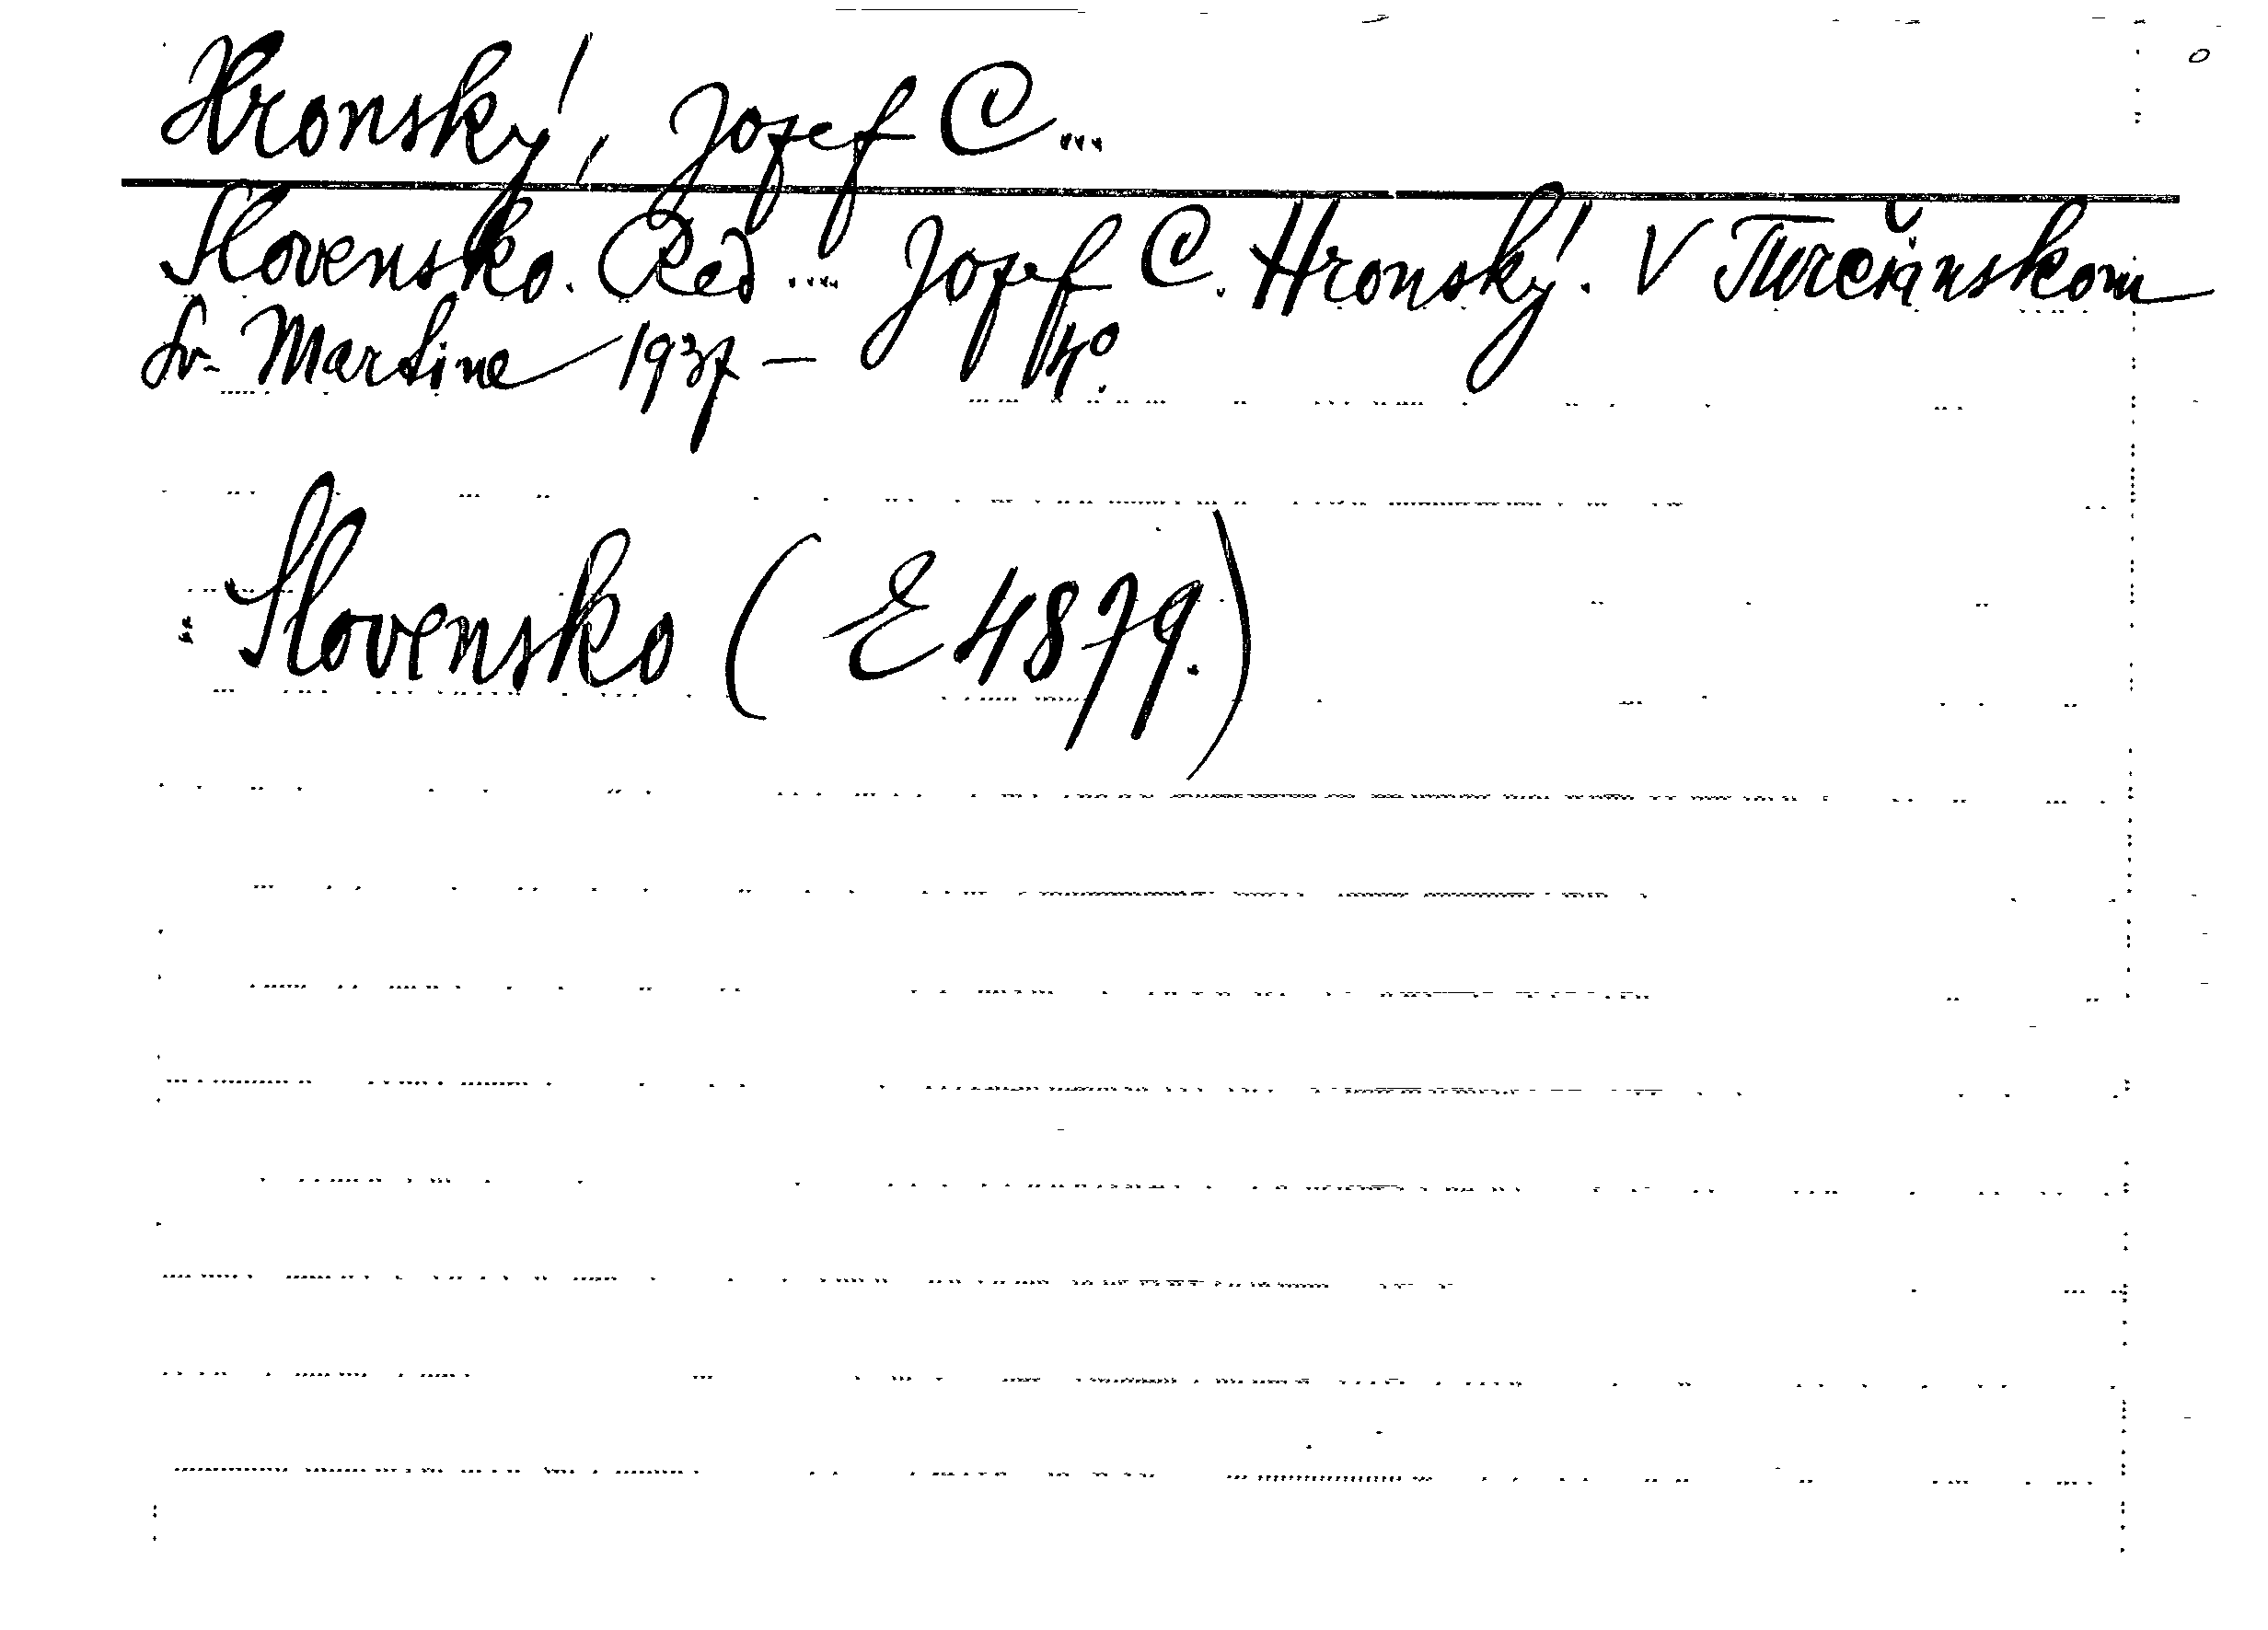 Hronský, Jozef C...
Slovensko. Red.... Jozef C. Hronský. V Turčianskom
Sv. Martine 1937 — 4°.
Slovensko (E 4879.)